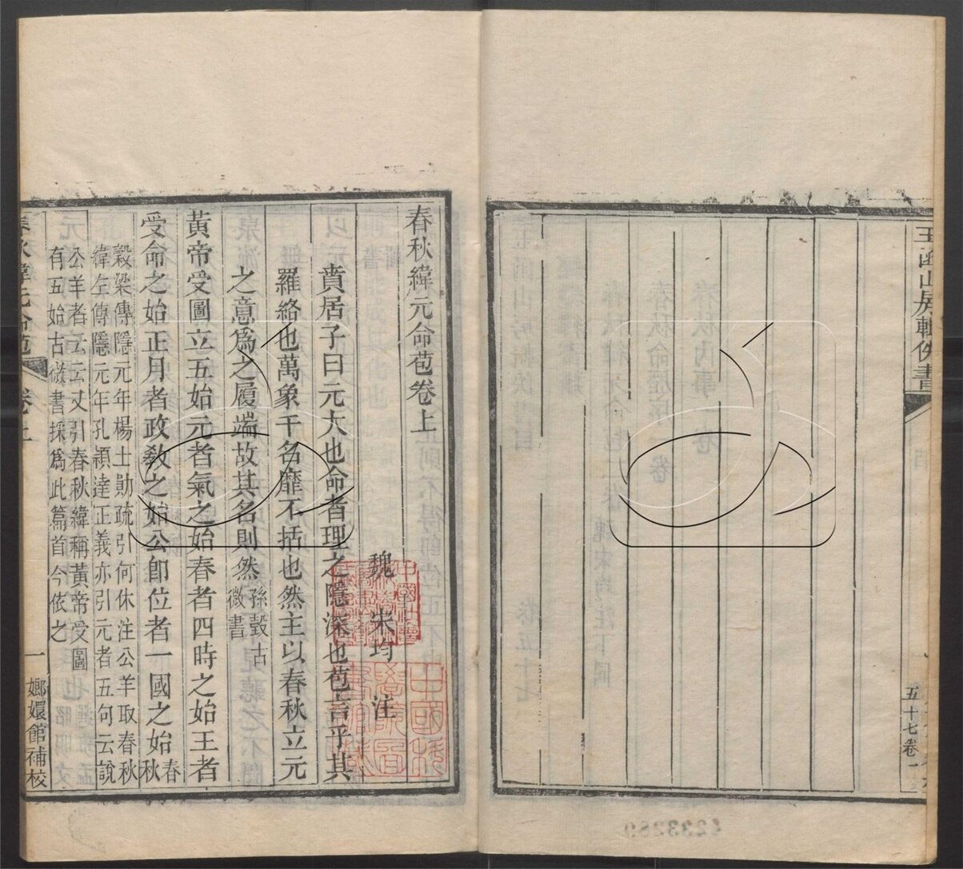 玉函山房輯佚書
五十七卷
春秋緯元命苞卷上
魏 宋均 注
賁居子曰元大也命者理之隱深也苞言乎其
羅絡也萬象千名靡不括也然主以春秋立元
之意爲之履端故其名則然孫瑴古
微書
黃帝受圖立五始元者氣之始春者四時之始王者
受命之始正月者政敎之始公卽位者一國之始春
秋
穀梁傳隱元年楊士勛疏引何休注公羊取春秋
緯左傳隱元年孔穎達正義亦引元者五句云說
公羊者云云又引春秋緯稱黃帝受圖
有五始古微書採爲此篇首今依之
春秋緯元命苞 卷上
一
嫏嬛館補校
4233280